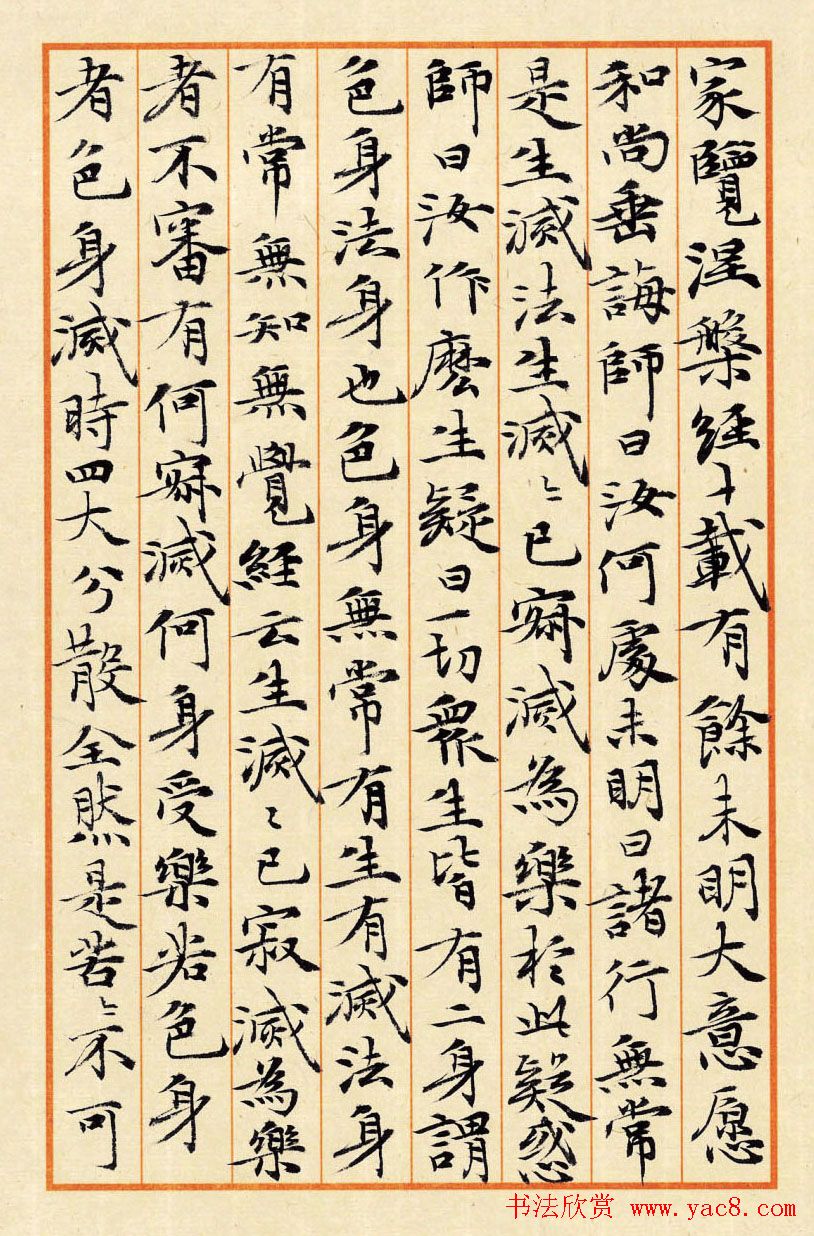 家覽涅槃經十載有餘未明大意愿
和尚垂誨師曰汝何處未明曰諸行無常
是生滅法生滅〻已寂滅為樂於此疑惑
師曰汝作麼生疑曰一切眾生皆有二身謂
色身法身也色身無常有生有滅法身
有常無知無覺經云生滅〻已寂滅為樂
者不審有何寂滅何身受樂若色身
者色身滅時四大分散全然是苦〻不可
书法欣赏 www.yac8.com